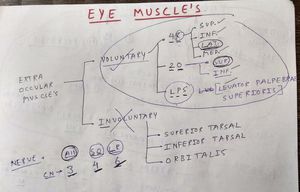 EYE MUSCLE'S
EXTRA OCCULAR MUSCLE'S
VOLUNTARY
4R
SUP.
INF.
LAT.
MED.
2O
SUP.
INF.
LPS
LEVATOR PALPEBRAE SUPERIORIS
INVOLUNTARY
SUPERIOR TARSAL
INFERIOR TARSAL
ORBITALIS
NERVE.
All SO LR
CN → 3 4 6